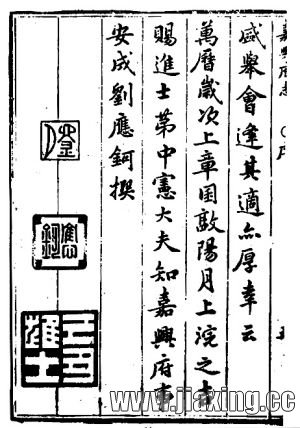 嘉興府志
盛舉會逢其適亦厚幸云
萬曆歲次上章困敦陽月上浣之吉
賜進士第中憲大夫知嘉興府事
安成劉應鈳撰
www.jiaxing.cc